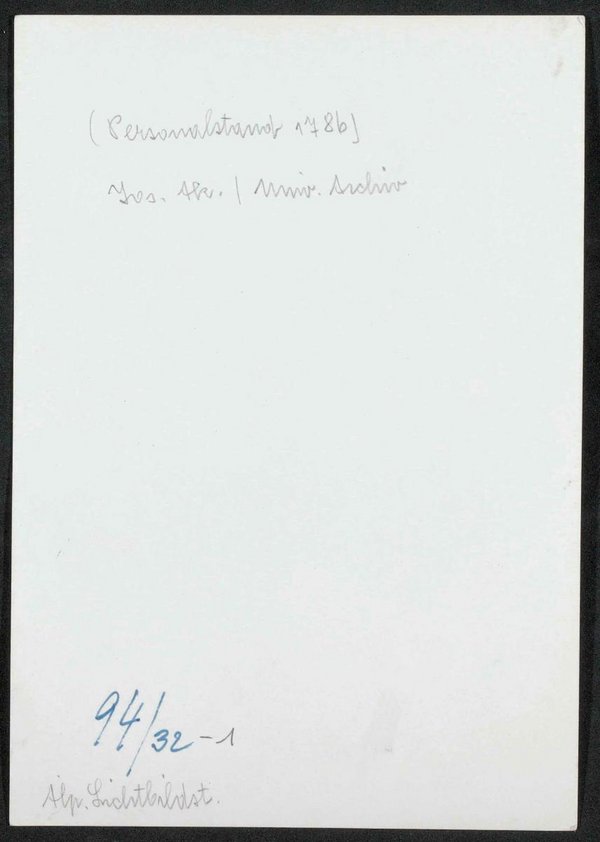 (Personalstand 1786)
Jos. Ak. / Univ. Archiv
94/32-1
Alp. Lichtbildst.